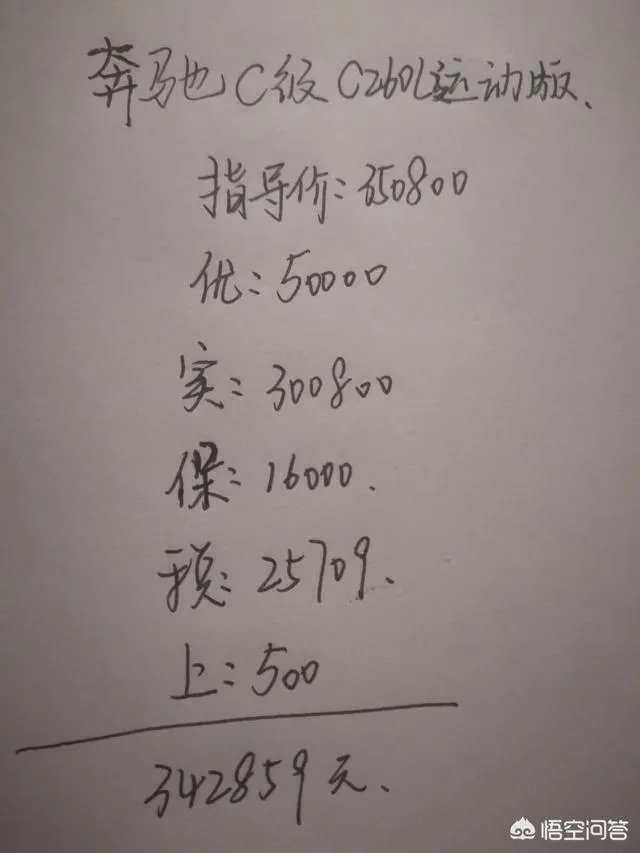 奔驰C级C260L运动版、
指导价:350800
优:50000
实:300800
保:16000.
税:25709、
上:500
342859元、
悟空问答